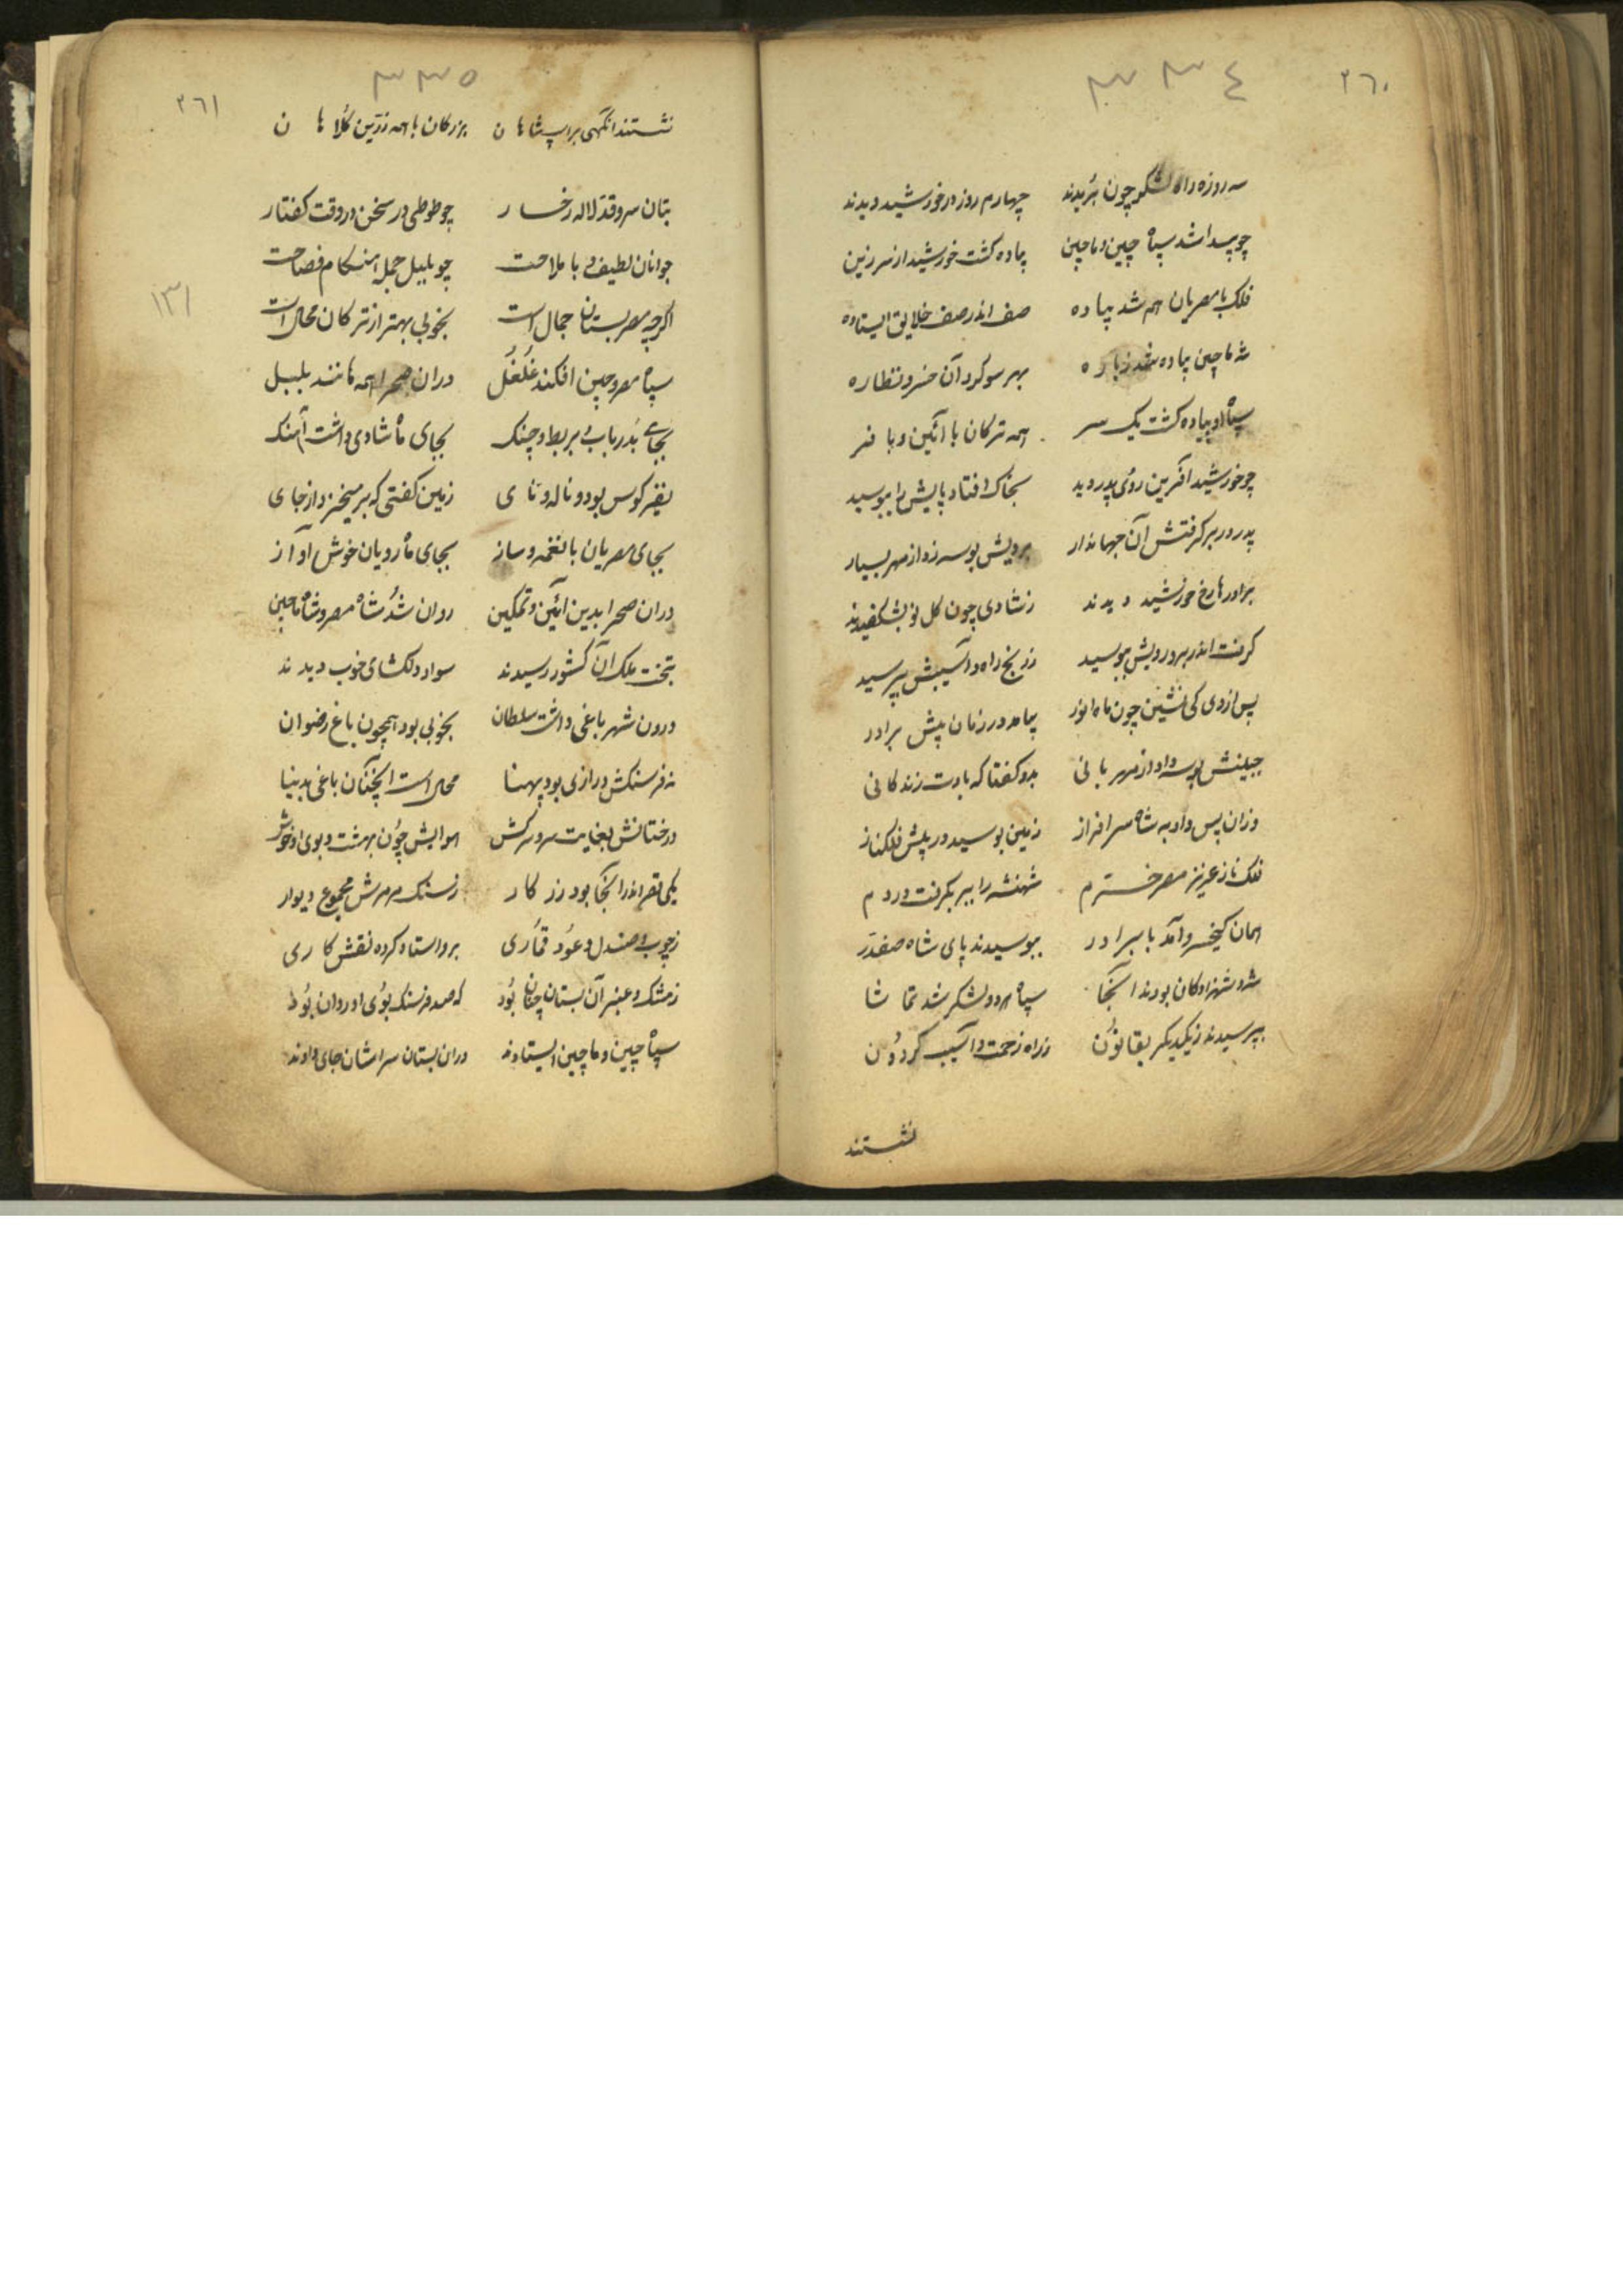 ٢٦٠
٣٣٤
سه روزه راه لشکر چون بریدند چهارم روز در خورشید دیدند
چو پیدا شد سپاه چین و ماچین پیاده کشت خورشید از سر زین
فلک با مصریان هم شد پیاده صف اندر صف خلایق ایستاده
شه ماچین پیاده شد ز باره بهر سو کرد آن خسرو نظاره
سپاه او پیاده کشت یک سر همه ترکان با آئین و با فر
چو خورشید آفرین روی پدر دید بخاک افتاد پایش را ببوسید
پدر در بر کرفتش آن جهاندار برویش بوسه زد از مهر بسیار
برادرها رخ خورشید دیدند ز شادی چون کل نو بشکفیدند
کرفت اندر بر و رویش ببوسید ز رنج راه و آسیبش بپرسید
پس از وی کی نشین چون ماه انور بیامد در زمان پیش برادر
جبینش بوسه داد از مهربانی بدو کفتا که بادت زندکانی
وزان پس داد به شاه سرافراز زمین بوسید در پیش فلکناز
فلکناز عزیز مصر خرم شهنشه را ببر بکرفت در دم
همان کیخسرو آمد با برادر ببوسیدند پای شاه صفدر
شه و شهزادکان بودند آنجا سپاه هر دو لشکر شد تماشا
بپرسیدند ز یکدیکر بقانون ز راه زحمت و آسیب کردون
نشستند
٣٣٥
٢٦١
نشستند انکهی بر اسپ شاهان بزرکان با همه زرین کلاهان
بتان سرو قد لاله رخسار چو طوطی در سخن در وقت کفتار
جوانان لطیف و با ملاحت چو بلبل جمله هنکام فصاحت
١٣١
اکرچه مصر بستان جمال است بخوبی بهتر از ترکان محال است
سپاه مصر و چین افکند غلغل دران صحرا همه مانند بلبل
بجای بد رباب و بربط و چنک بجای ماه شادی داشت آهنک
نفیر کوس بود و ناله و نای زمین کفتی که بر میخیزد از جای
بجای مصریان با نغمه و ساز بجای ماه رویان خوش آواز
دران صحرا بدین آئین و تمکین روان شد شاه مصر و شاه ماچین
بتخت ملک آن کشور رسیدند سواد دلکشای خوب دیدند
درون شهر باغی داشت سلطان بخوبی بود همچون باغ رضوان
نه فرسنکش درازی بود پهنا محال است انچنان باغی بدنیا
درختانش بغایت سرو سرکش هوایش چون بهشت و بوی او خوش
یکی قصر اندر آنجا بود زر کار ز سنک مرمرش مجموع دیوار
ز چوب صندل و عود قماری برو استاد کرده نقش کاری
ز مشک و عنبر آن بستان چنان بود که صد فرسنک بوی او روان بود
سپاه چین و ماچین ایستادند دران بستان سراشان جای دادند